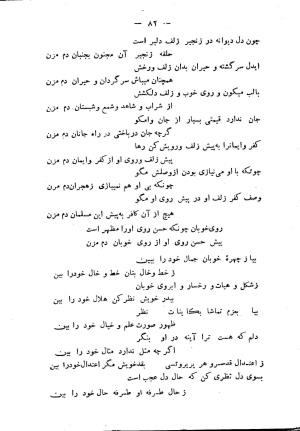 — ۸۲ —
چون دل دیوانه در زنجیر زلف دلبر است
حلقه زنجیر آن مجنون بجنبان دم مزن
ایدل سرگشته و حیران بدان زلف ورخش
همچنان میباش سرگردان و حیران دم مزن
بالب میگون و روی خوب و زلف دلکشش
از شراب و شاهد وشمع وشبستان دم مزن
جان ندارد قیمتی بسیار از جان وامگو
گرچه جان درباختی در راه جانان دم مزن
کفر وایمانرا به پیش زلف ورویش کن رها
پیش زلف وروی او از کفر وایمان دم مزن
چونکه با او می نیازی بودن ازوصلش مگو
چونکه بی او هم نمیبازی زهجران دم مزن
وصف کفر زلف او در پیش روی او مگو
هیچ از آن کافر به پیش این مسلمان دم مزن
روی خوبان چونکه حسن روی اورا مظهر است
پیش حسن روی او از روی خوبان دم مزن
بیا ز چهرهٔ خوبان جمال خود را ببین
ز خط وخال بتان خط و خال خودرا بین
ز شکل و هیأت و رخسار و ابروی خوبان
ببدر خویش نظر کن هلال خود را بین
بیا بعزم تماشا بکاینات نظر
ظهور صورت علم و خیال خود را بین
دلم که هست ترا آینه در او بنگر
اگر چه مثل ندارد مثال خود را بین
ز اعتدال قدسرو هر پریروئی
بقدخویش مگر اعتدال خودرا بین
بسوی دل نظری کن که حال دل عجب است
ز حال طرفهٔ او طرفه حال خود را بین